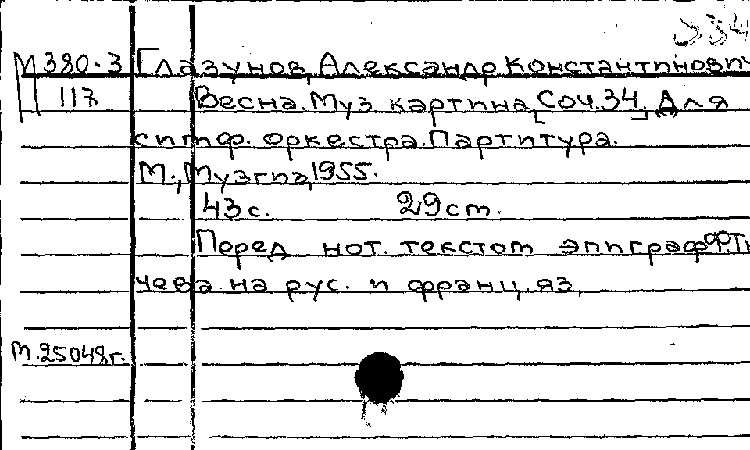 334
М 380-3 Глазунов, Александр Константинович
117 Весна. Муз. картина. Соч. 34. Для
симф. оркестра. Партитура.
М., Музгиз, 1955.
43 с. 29 ст.
Перед нот. текстом эпиграф Ф. Тют
чева на рус. и франц. яз.
М. 25048г.